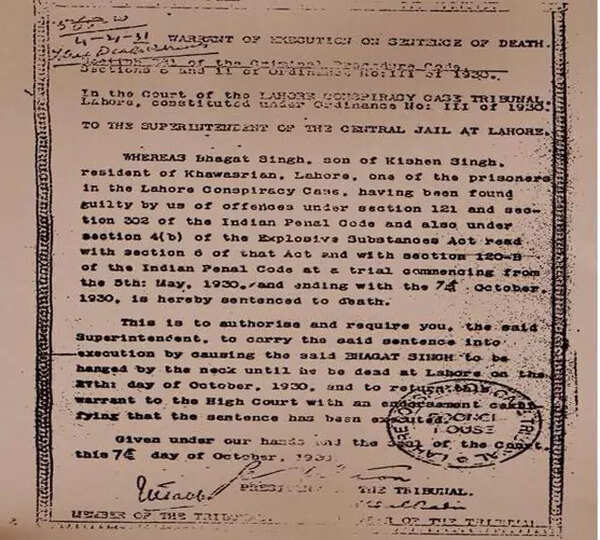 4-4-31
WARRANT OF EXECUTION ON SENTENCE OF DEATH.
of the Criminal Procedure Code.
Sections 8 and 11 of Ordinance No: III of 1930.
In the Court of the LAHORE CONSPIRACY CASE TRIBUNAL,
Lahore, constituted under Ordinance No: III of 1930.
TO THE SUPERINTENDENT OF THE CENTRAL JAIL AT LAHORE.
WHEREAS Bhagat Singh, son of Kishen Singh,
resident of Khawasrian, Lahore, one of the prisoners
in the Lahore Conspiracy Case, having been found
guilty by us of offences under section 121 and sec-
tion 302 of the Indian Penal Code and also under
section 4(b) of the Explosive Substances Act read
with section 6 of that Act and with section 120-B
of the Indian Penal Code at a trial commencing from
the 5th: May, 1930, and ending with the 7th October,
1930, is hereby sentenced to death.
This is to authorise and require you, the said
Superintendent, to carry the said sentence into
execution by causing the said BHAGAT SINGH to be
hanged by the neck until he be dead at Lahore on the
27th: day of October, 1930, and to return this
warrant to the High Court with an endorsement certi-
fying that the sentence has been executed.
Given under our hands and the seal of the Court,
this 7th day of October, 1930.
PRESIDENT THE TRIBUNAL.
MEMBER OF THE TRIBUNAL OF THE TRIBUNAL
LAHORE CONSPIRACY CASE TRIBUNAL
HOUSE